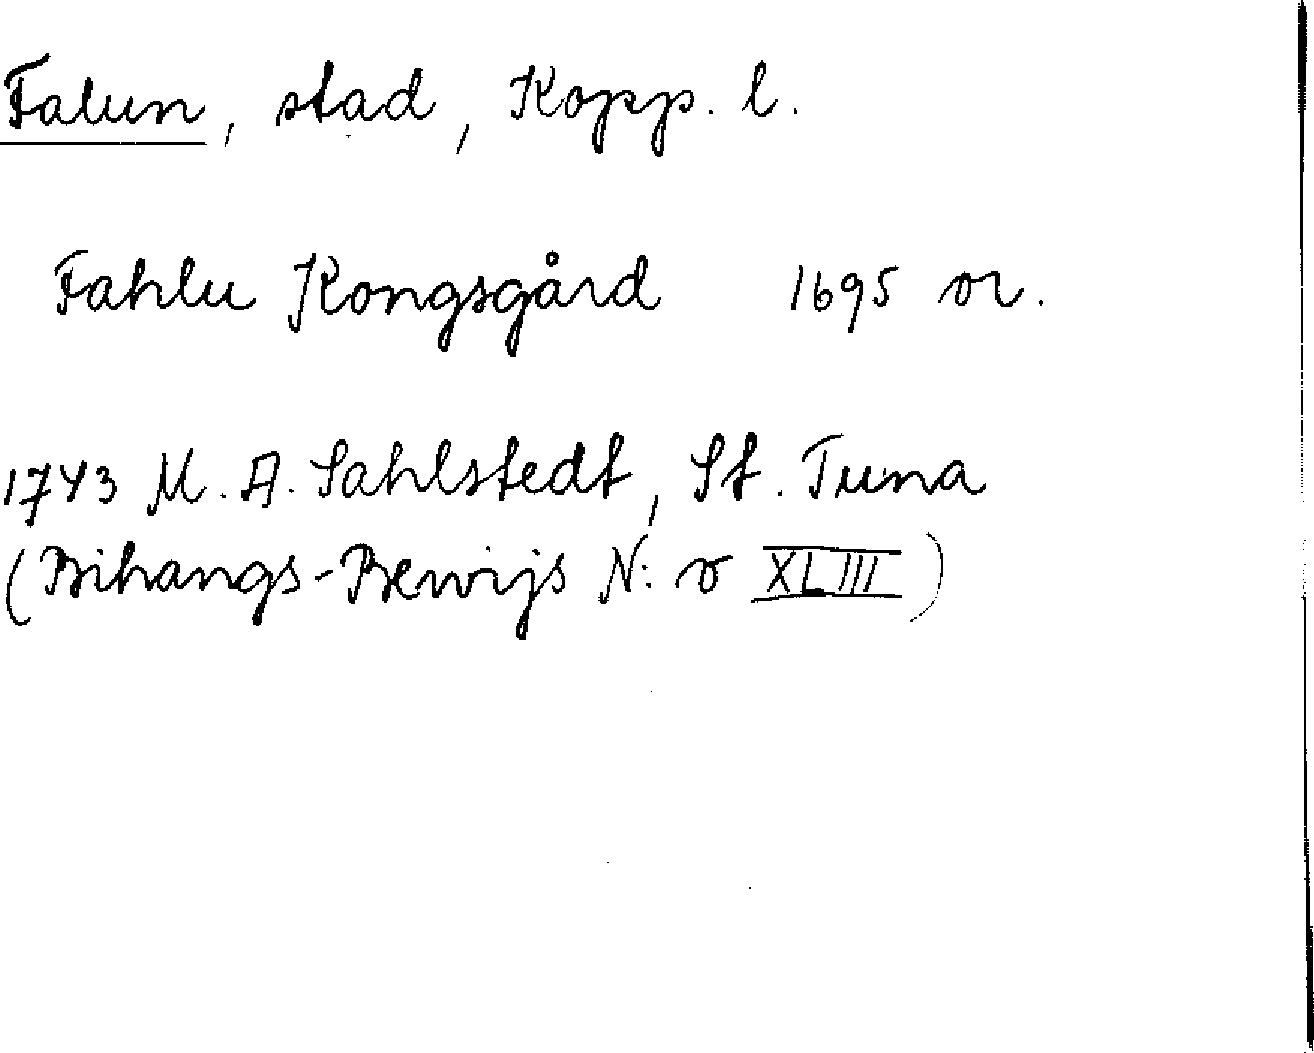 Falun, stad, Kopp. l.
Fahlu Kongsgård 1695 or.
1743 M. A. Sahlstedt, St. Tuna
(Bihangs-Bewijs N:o XLIII)